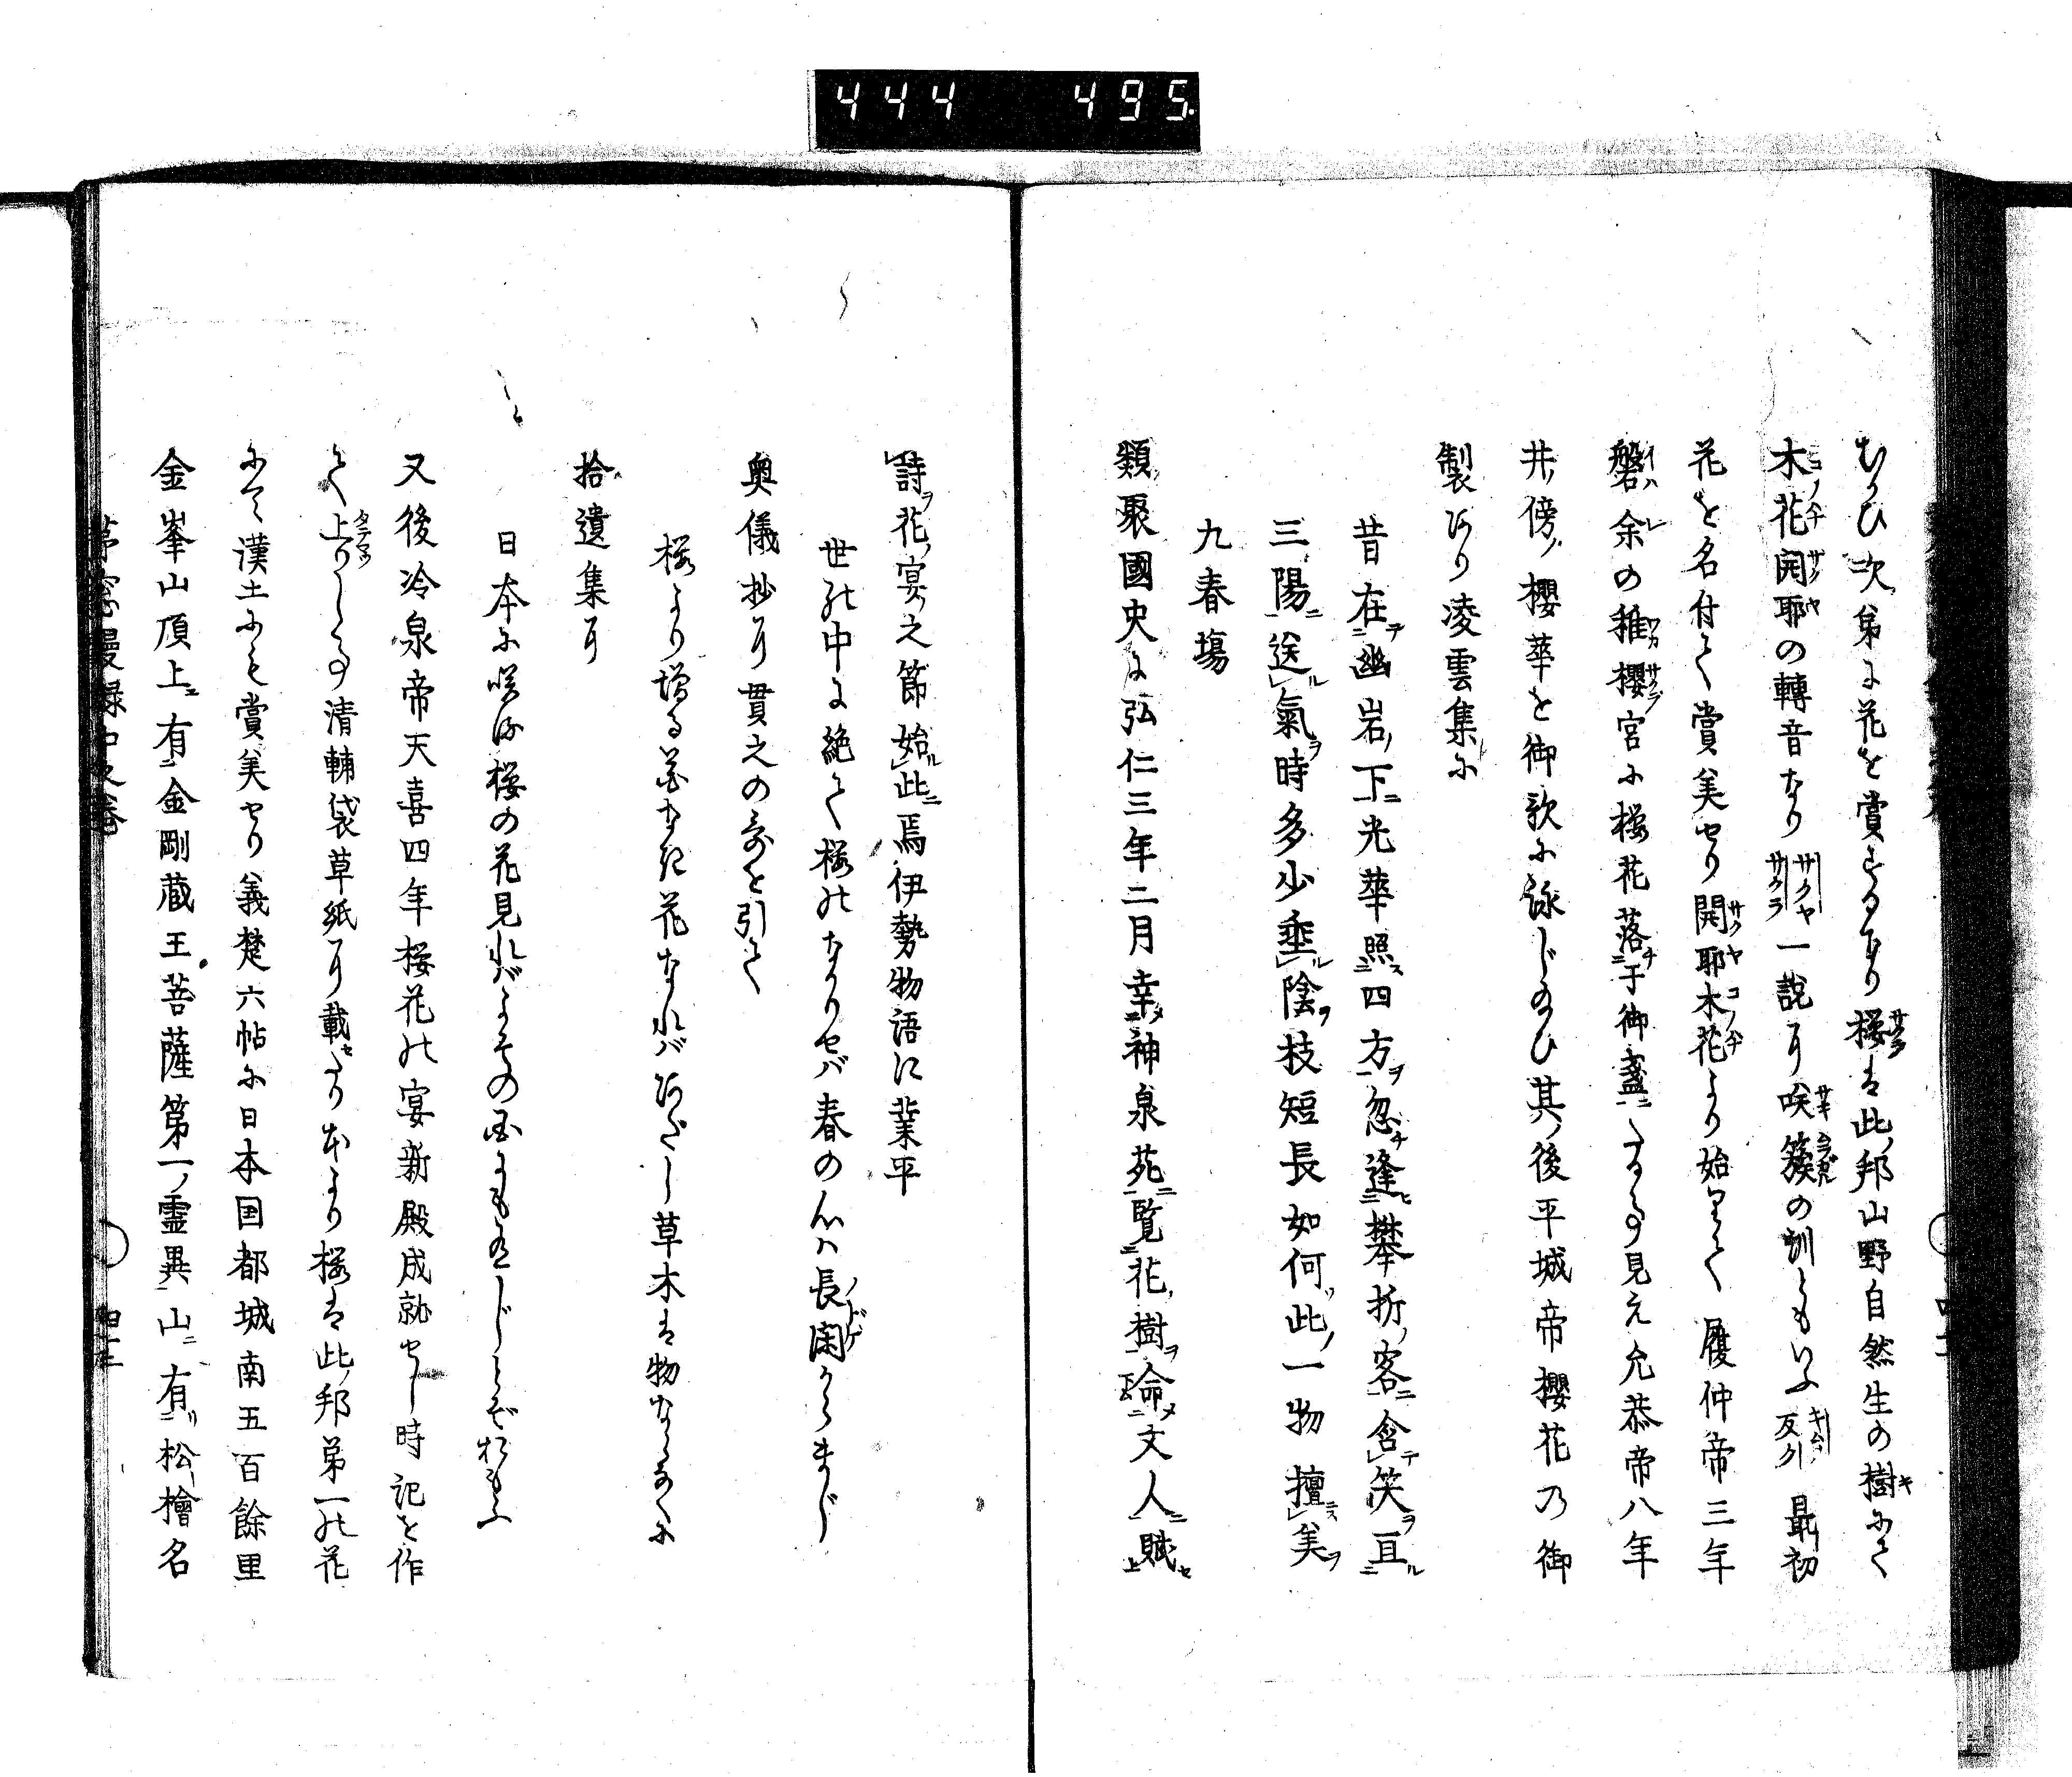 444 495.
むかひ次第に花を賞するなり桜は此邦山野自然生の樹にて
木花開耶の轉音なり一說に咲簇の訓ともいふ最初
花を名付て賞美せり開耶木花より始りて履仲帝三年
磐余の稚櫻宮に桜花落于御盞したる事見え允恭帝八年
井傍ノ櫻華を御歌に詠じ給ひ其後平城帝櫻花乃御
製あり凌雲集に
昔在幽岩下光華照四方忽逢攀折客含笑亘
三陽送氣時多少垂陰枝短長如何此一物擅美
九春塲
類聚國史に弘仁三年二月幸神泉苑覧花樹命文人賦
詩花宴之節始此焉伊勢物語に業平
世の中に絶て桜のなかりせば春の心ハ長閑からまじ
奥儀抄に貫之の哥を引て
桜より増る花なき花なればあだし草木は物ならなくに
拾遺集に
日本に咲る桜の花見ればよその国にもあらじとぞおもふ
又後冷泉帝天喜四年桜花の宴新殿成就せし時記を作
て上りし事清輔袋草紙に載たり本より桜は此邦第一の花
にて漢土にも賞美せり義楚六帖に日本国都城南五百餘里
金峯山頂上有金剛蔵王菩薩第一ノ霊異山有松檜名
茅窓漫録中之巻